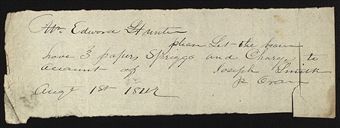 Mr Edward Hunter
please Let the bearer
have 3 papers Spriggs and Charge to
account of Joseph Smith
Augt 1st 1842